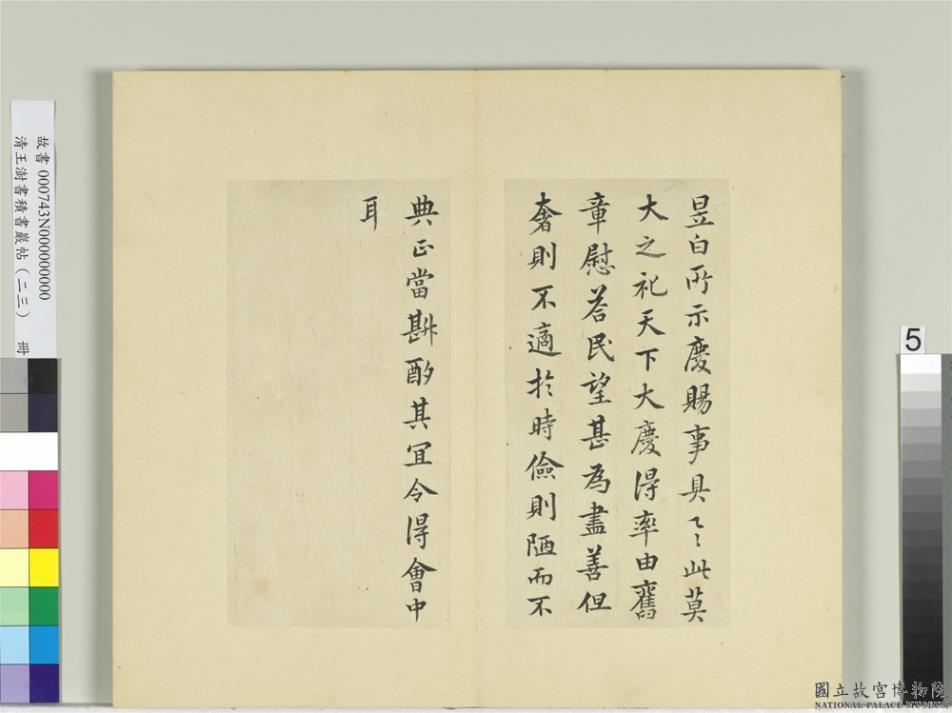 昱白所示慶賜事具之〻此莫
大之祀天下大慶得率由舊
章慰荅民望甚為盡善但
奢則不適於時儉則陋而不
典正當斟酌其宜令得會中
耳
故書 000743N000000000
清王澍書積書巖帖(二三) 冊
5
國立故宮博物院
NATIONAL PALACE MUSEUM